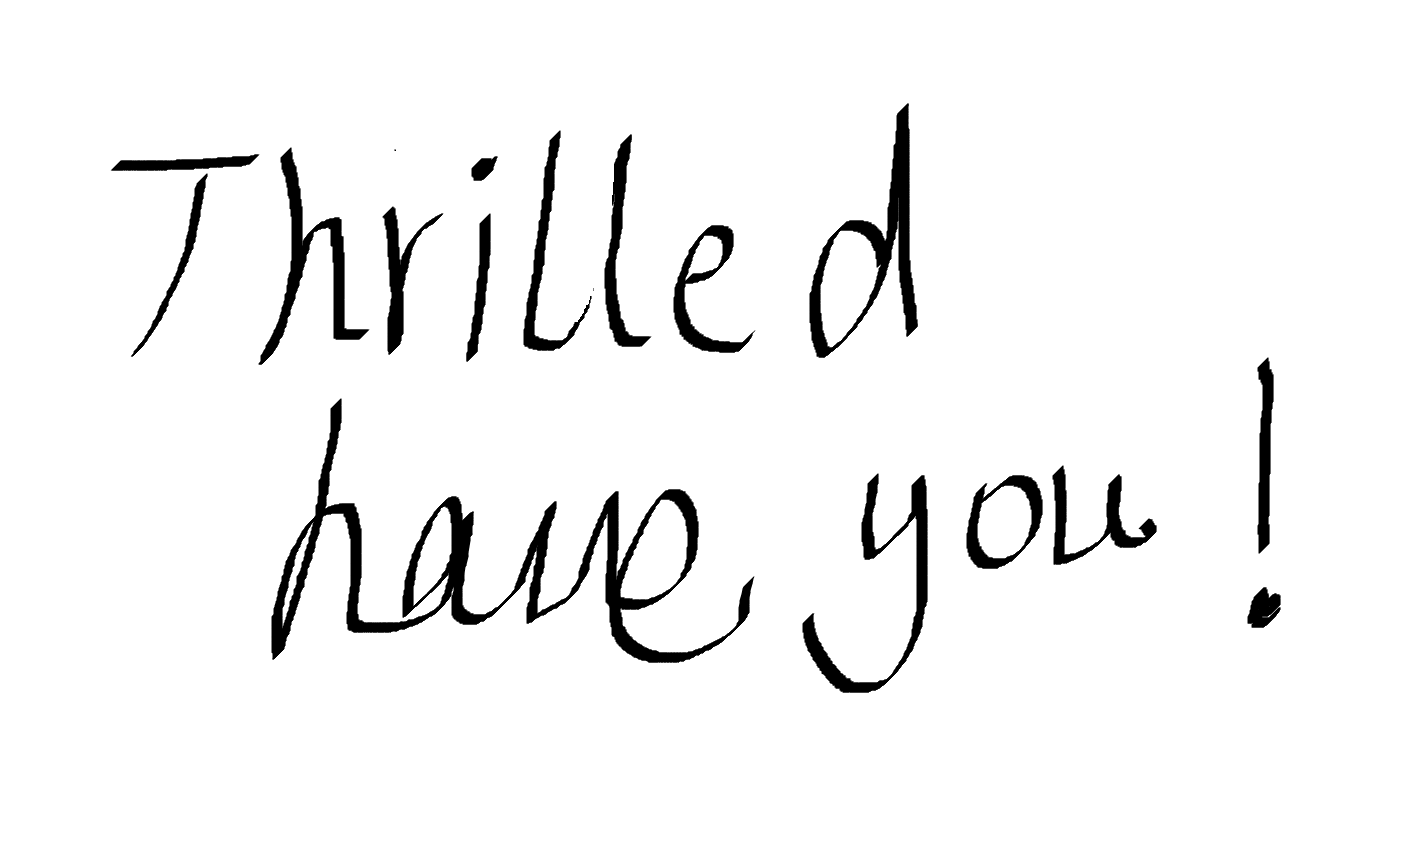 Thrilled
have you!